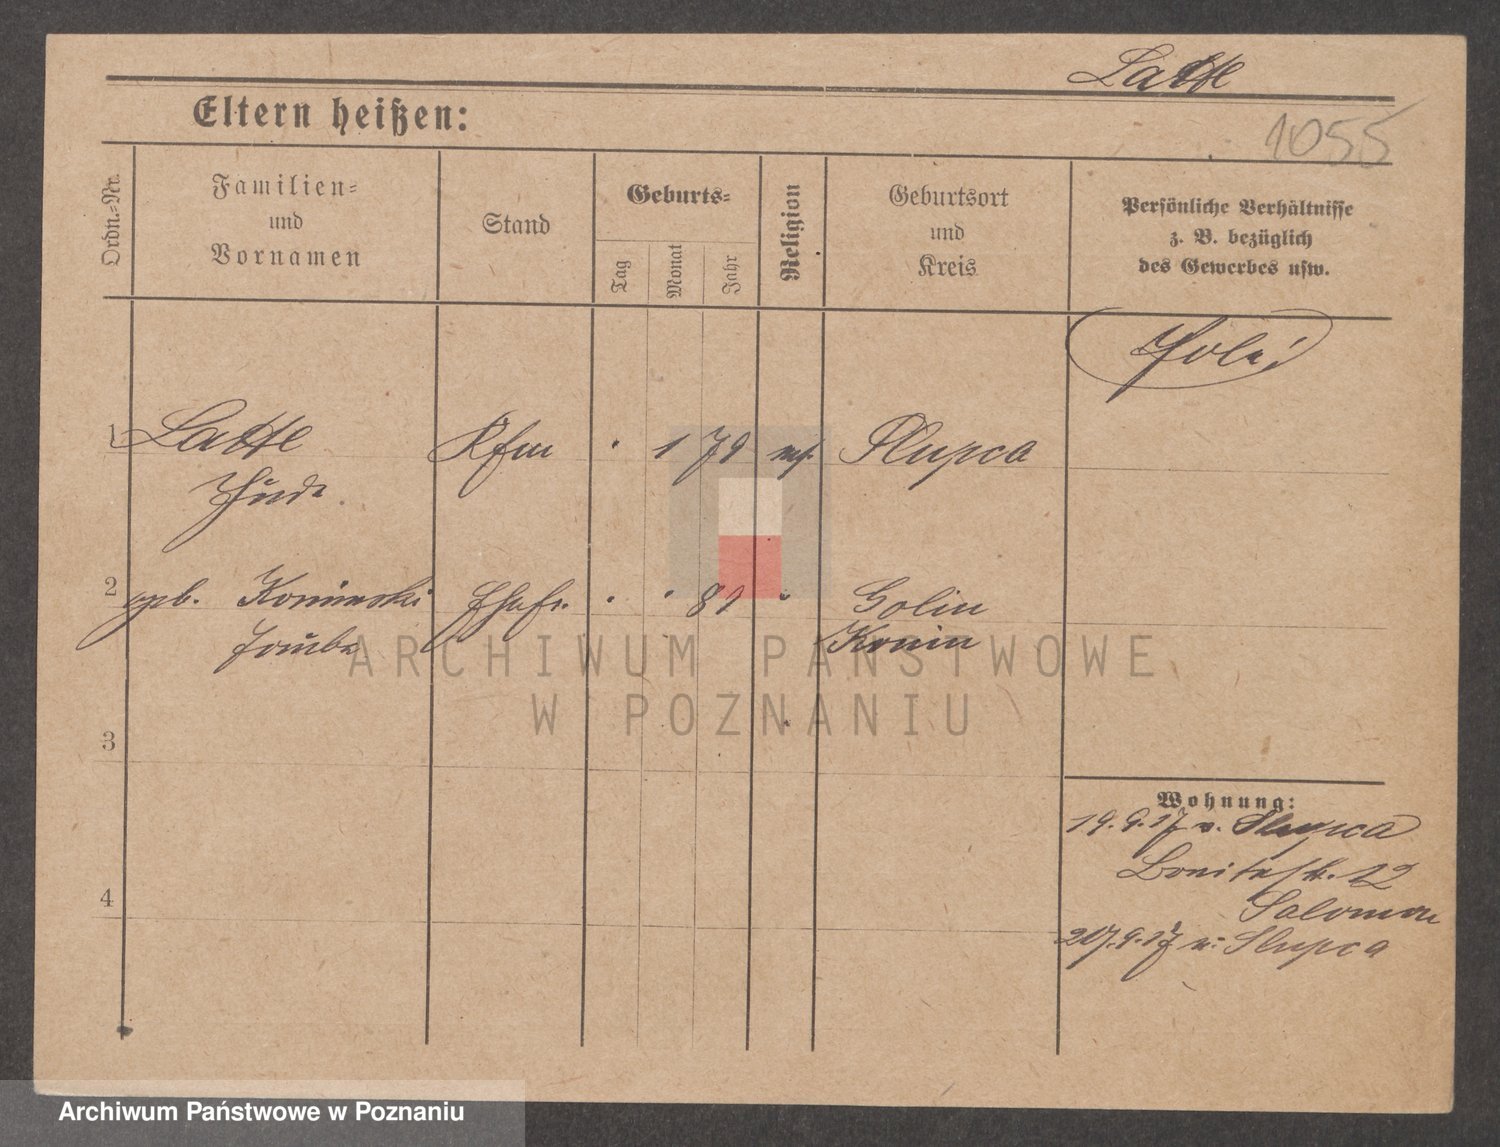 Latte
Eltern heißen:
1055
Ordn.=Nr.
Familien=
und
Vornamen
Stand
Geburts=
Tag
Monat
Jahr
Religion
Geburtsort
und
Kreis
Persönliche Verhältnisse
z. B. bezüglich
des Gewerbes usw.
1 Latte Kfm 1 79 Slupca
2 geb. Koninski Ehefr. 81 Golin
Konin
3
4
Wohnung:
19.9.17 v. Slupca
12
Salomon
20.9.17 n. Slupca
ARCHIWUM PAŃSTWOWE
W POZNANIU
Archiwum Państwowe w Poznaniu